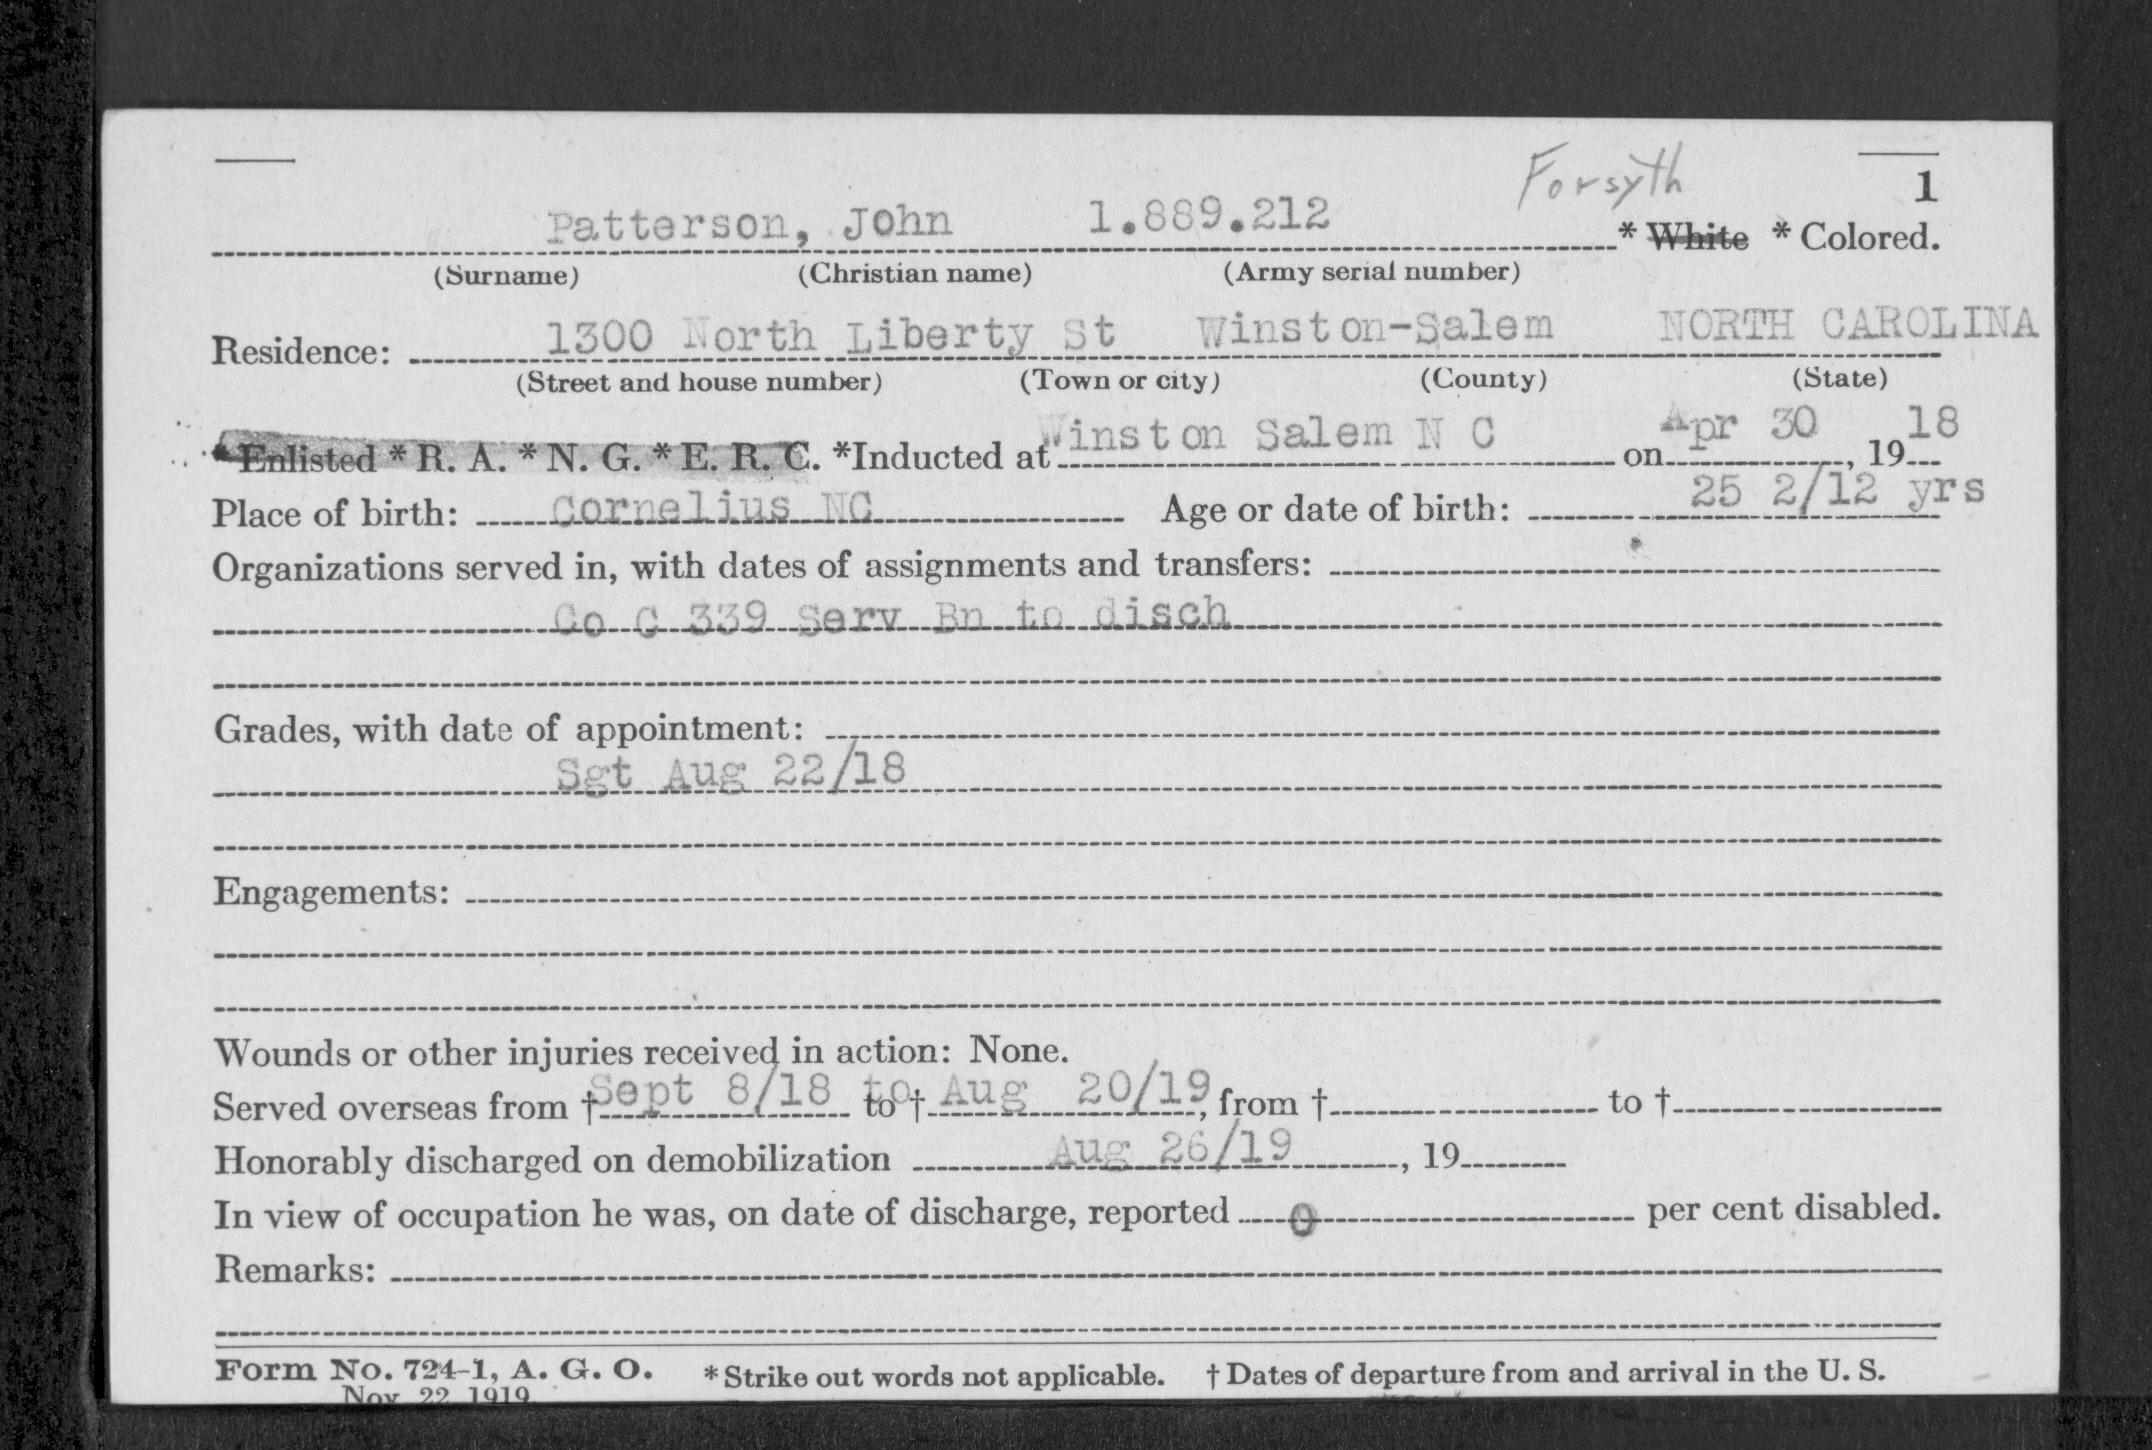 Forsyth
1
Patterson, John 1.889.212 * White * Colored.
(Surname) (Christian name) (Army serial number)
Residence: 1300 North Liberty St Winston-Salem NORTH CAROLINA
(Street and house number) (Town or city) (County) (State)
* Enlisted * R. A. * N. G. * E. R. C. *Inducted at Winston Salem N C on Apr 30, 1918
Place of birth: Cornelius NC Age or date of birth: 25 2/12 yrs
Organizations served in, with dates of assignments and transfers:
Co C 339 Serv Bn to disch
Grades, with date of appointment:
Sgt Aug 22/18
Engagements:
Wounds or other injuries received in action: None.
Served overseas from † Sept 8/18 to to † Aug 20/19, from † to †
Honorably discharged on demobilization Aug 26/19, 19
In view of occupation he was, on date of discharge, reported 0 per cent disabled.
Remarks:
Form No. 724-1, A. G. O. * Strike out words not applicable. † Dates of departure from and arrival in the U. S.
Nov 22 1919